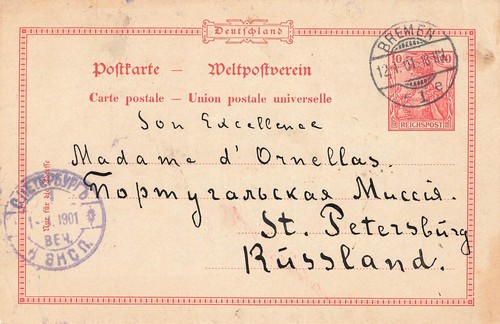 Deutschland
Postkarte — Weltpostverein
Carte postale — Union postale universelle
BREMEN
12.1.01.
1 e
10 10
REICHSPOST
Son Excellence
Madame d'Ornellas.
Португальская Миссія.
St. Petersburg
Russland.
Nur für die
С.ПЕТЕРБУРГЪ
1901
ВЕЧ.